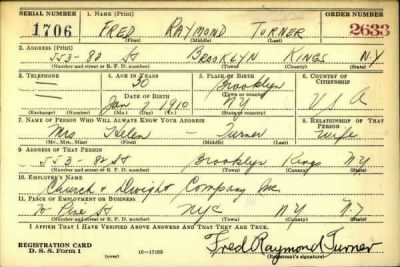 SERIAL NUMBER 1. NAME (Print) ORDER NUMBER
1706 FRED RAYMOND TURNER 2633
(First) (Middle) (Last)
2. ADDRESS (Print)
553-82 St BROOKLYN KINGS N.Y
(Number and street or R. F. D. number) (Town) (County) (State)
3. TELEPHONE 4. AGE IN YEARS 5. PLACE OF BIRTH 6. COUNTRY OF CITIZENSHIP
— 30 Brooklyn
DATE OF BIRTH (Town or county)
— Jan 2 1910 NY U S A
(Exchange) (Number) (Mo.) (Day) (Yr.) (State or country)
7. NAME OF PERSON WHO WILL ALWAYS KNOW YOUR ADDRESS 8. RELATIONSHIP OF THAT PERSON
Mrs Helen — Turner Wife
(Mr., Mrs., Miss) (First) (Middle) (Last)
9. ADDRESS OF THAT PERSON
553-82 St Brooklyn Kings NY
(Number and street or R. F. D. number) (Town) (County) (State)
10. EMPLOYER'S NAME
Church & Dwight Company Inc
11. PLACE OF EMPLOYMENT OR BUSINESS
70 Pine St NYC NY N.Y
(Number and street or R. F. D. number) (Town) (County) (State)
I AFFIRM THAT I HAVE VERIFIED ABOVE ANSWERS AND THAT THEY ARE TRUE.
REGISTRATION CARD
D. S. S. Form 1 (over) 16—17105
Fred Raymond Turner
(Registrant's signature)